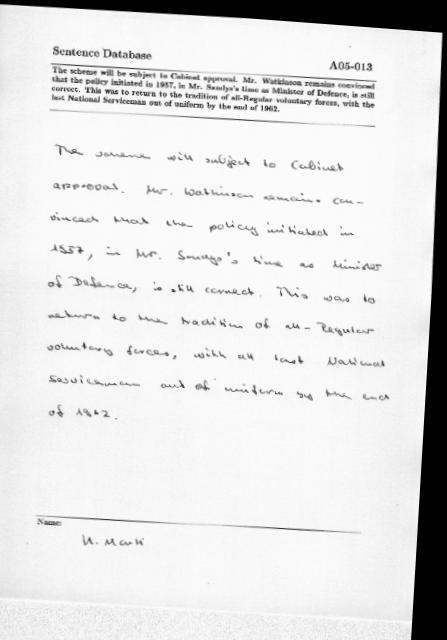 Sentence Database
A05-013
The scheme will be subject to Cabinet approval. Mr. Watkinson remains convinced
that the policy initiated in 1957, in Mr. Sandys's time as Minister of Defence, is still
correct. This was to return to the tradition of all-Regular voluntary forces, with the
last National Serviceman out of uniform by the end of 1962.
The scheme will subject to Cabinet
approval. Mr. Watkinson remains con-
vinced that the policy initiated in
1957, in Mr. Sandys's time as Minister
of Defence, is still correct. This was to
return to the tradition of all-Regular
voluntary forces, with all last National
Serviceman out of uniform by the end
of 1962.
Name: